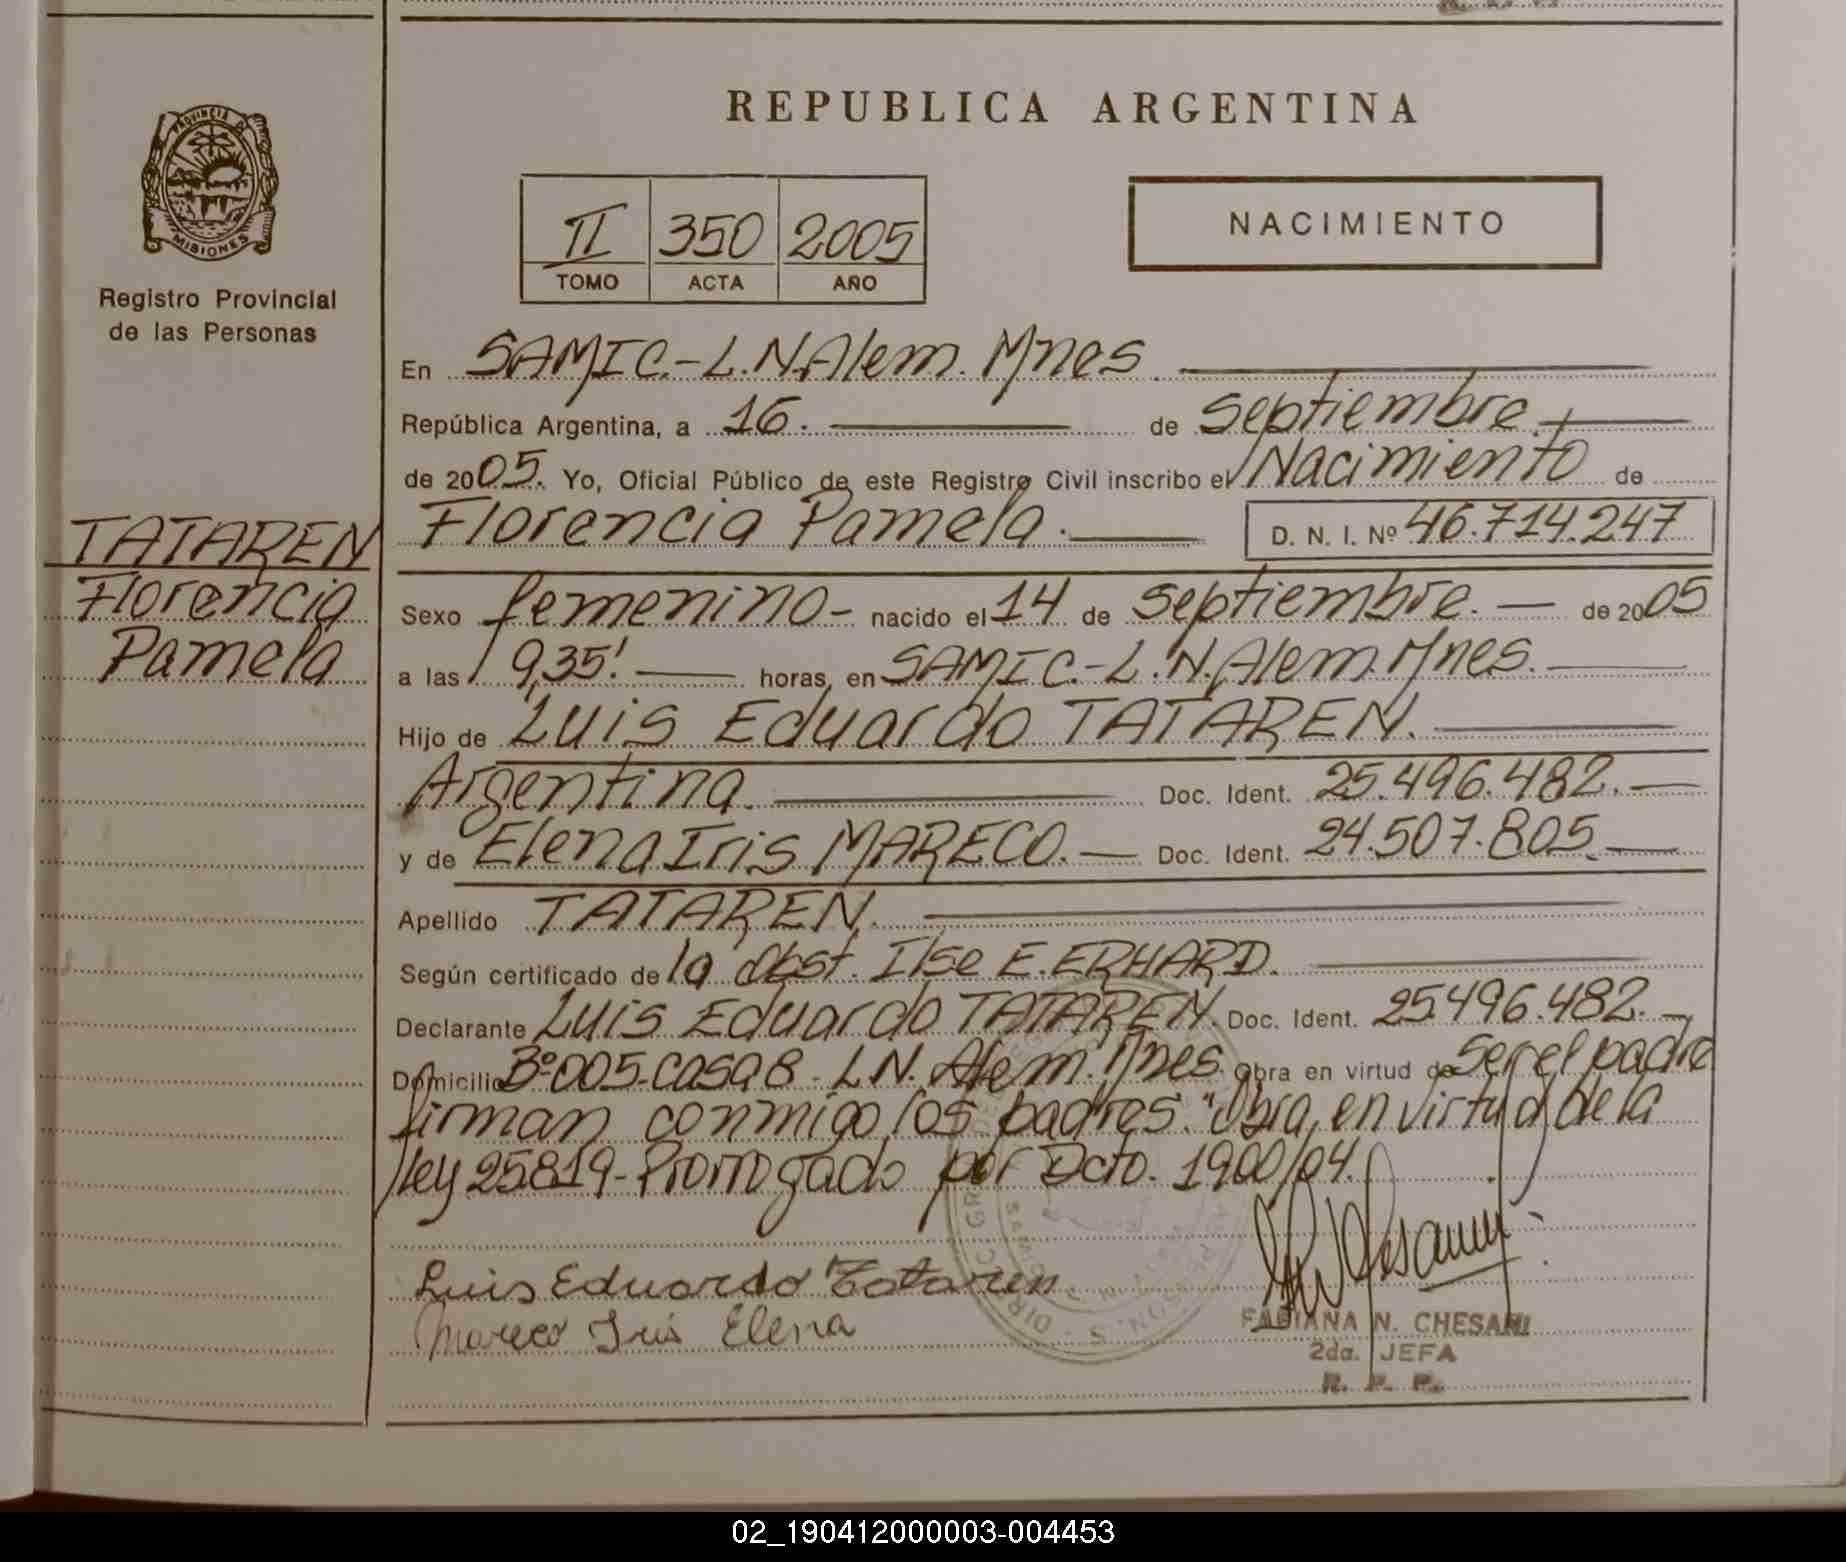 REPUBLICA ARGENTINA
PROVINCIA DE
MISIONES
Registro Provincial
de las Personas
II 350 2005
TOMO ACTA AÑO
NACIMIENTO
En SAMIC.-L.N.Alem. Mnes
República Argentina, a 16. de Septiembre.
de 2005. Yo, Oficial Público de este Registro Civil inscribo el Nacimiento de
Florencia Pamela. D. N. I. Nº 46.714.247
TATAREN
Florencia
Pamela
Sexo femenino- nacido el 14 de septiembre. de 2005
a las 9,35' horas, en SAMIC.-L.N.Alem.Mnes.
Hijo de Luis Eduardo TATAREN.
Argentina. Doc. Ident. 25.496.482.
y de Elena Iris MARECO. Doc. Ident. 24.507.805.
Apellido TATAREN.
Según certificado de la Obst. Ilse E. ERHARD.
Declarante Luis Eduardo TATAREN. Doc. Ident. 25.496.482.
Domicilio Bº005-casa 8. L N. Alem. Mnes. Obra en virtud de Ser el padre
firman conmigo los padres. "Obra en virtud de la
ley 25819-Prorrogado por Dcto. 1900/04.
Luis Eduardo Tataren
Mareco Iris Elena
FABIANA N. CHESANI
2da. JEFA
R. P. P.
02_190412000003-004453